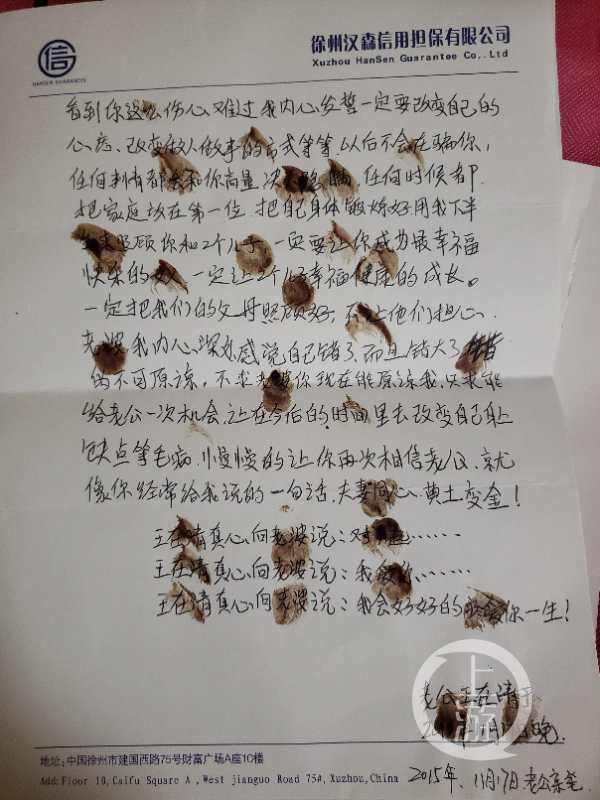 信
HANSEN GUARANTEE
徐州汉森信用担保有限公司
Xuzhou HanSen Guarantee Co,.Ltd
看到你这么伤心难过我内心发誓一定要改变自己的
心态、改变做人做事的方式等等.以后不会在骗你,
任何事情都会和你商量 决 瞒 任何时候都
把家庭放在第一位 把自己身体锻炼好用我下半
照顾你和2个儿子 一定要让你成为最幸福
快乐的女人 一定让2个儿子幸福健康的成长。
一定把我们的父母照顾好,不让他们担心.
老婆我内心深处感觉自己错了 而且错大了
的不可原谅,不求老婆你现在能原谅我,只求能
给老公一次机会,让在今后的时间里去改变自己身上
缺点等毛病,慢慢的让你再次相信老公,就
像你经常给我说的一句话,夫妻同心、黄土变金!
王在清真心向老婆说:对不起……
王在清真心向老婆说:我爱你……
王在清真心向老婆说:我会好好的 爱你一生!
老公王在清于
晚
2015年.11月17日 老公亲笔
上游
地址:中国徐州市建国西路75号财富广场A座10楼
Add:Floor 10,Caifu Square A ,West jianguo Road 75#,Xuzhou,China